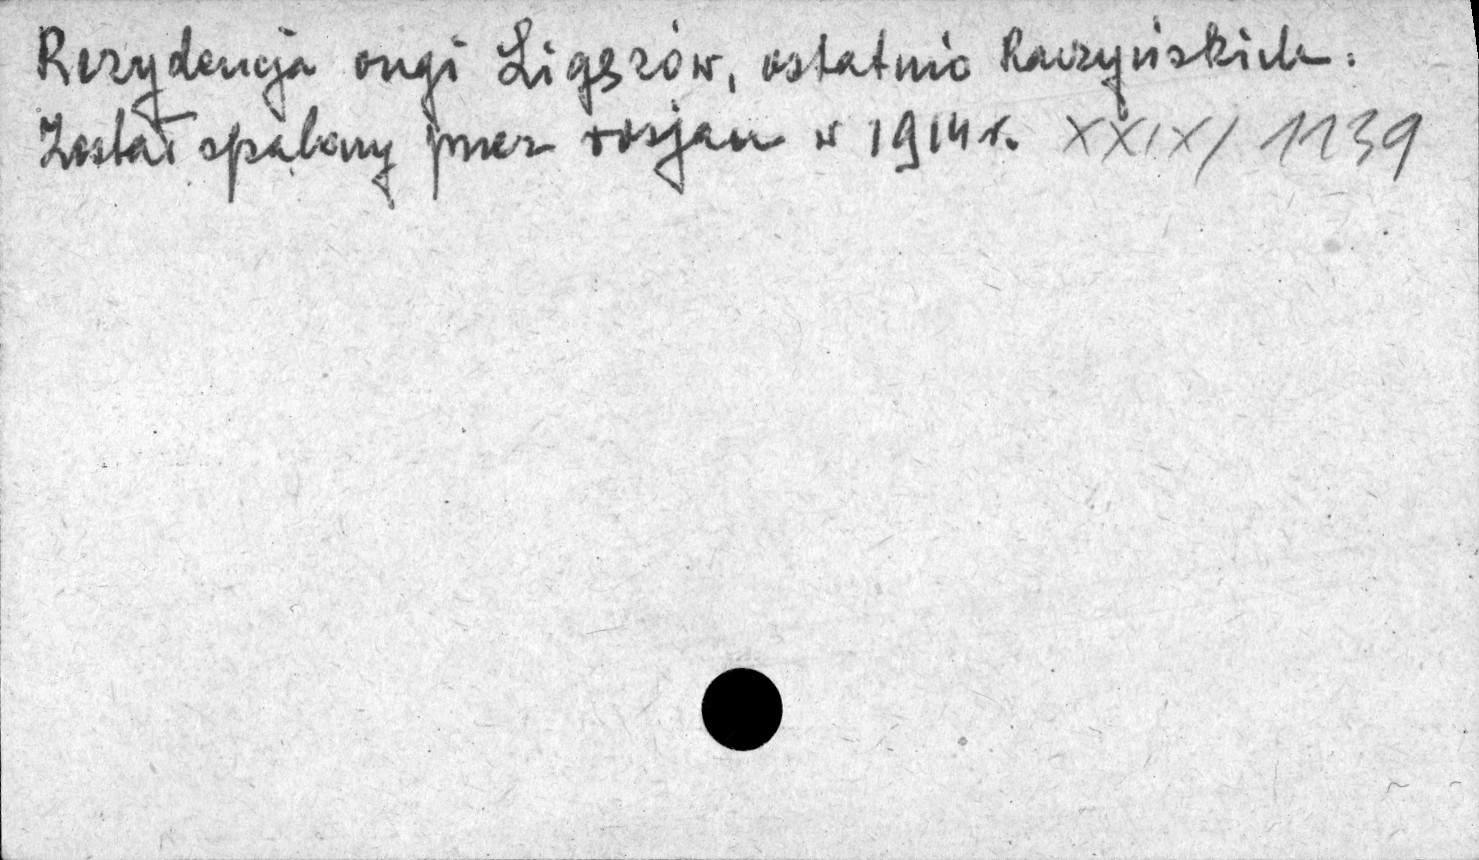 Rezydencja ongi Ligęzów, ostatnio Raczyńskich.
Został spalony przez rosjan w 1914 r. XXIX/1139